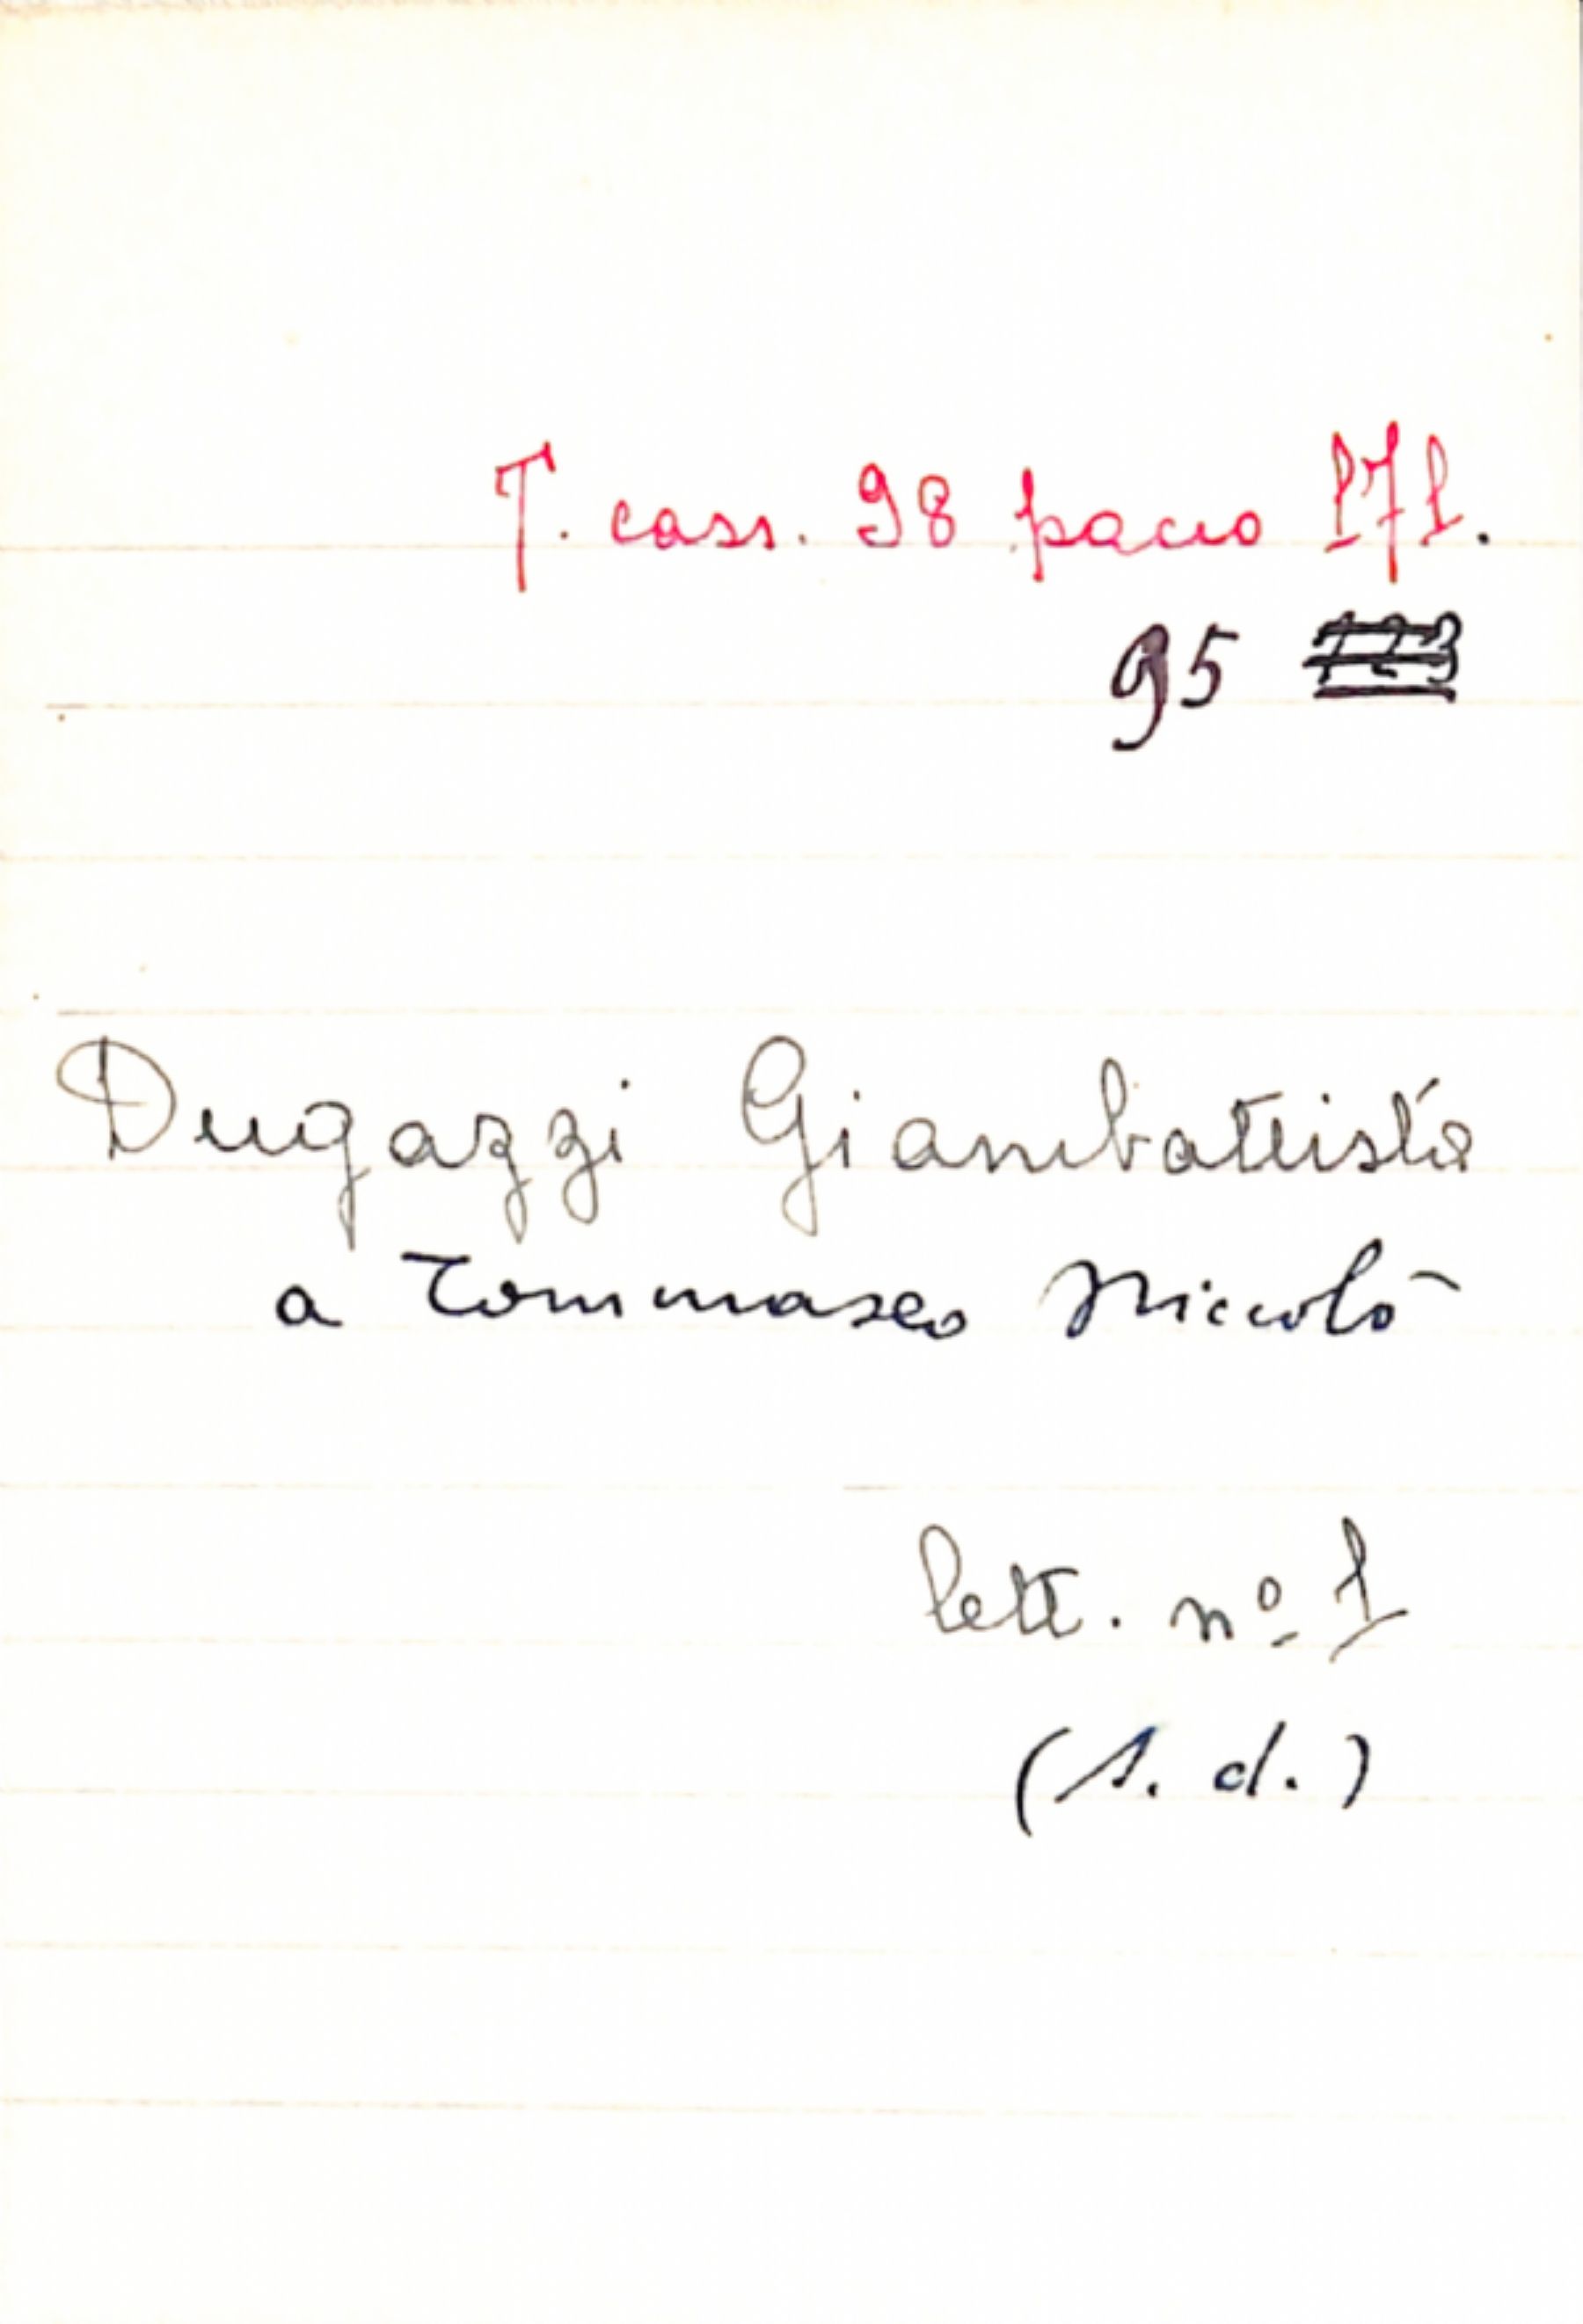 T. cass. 98 pacco 171.
95 123
Dugazzi Giambattista
a Tommaseo Niccolò
lett. nº 1
(s. d.)